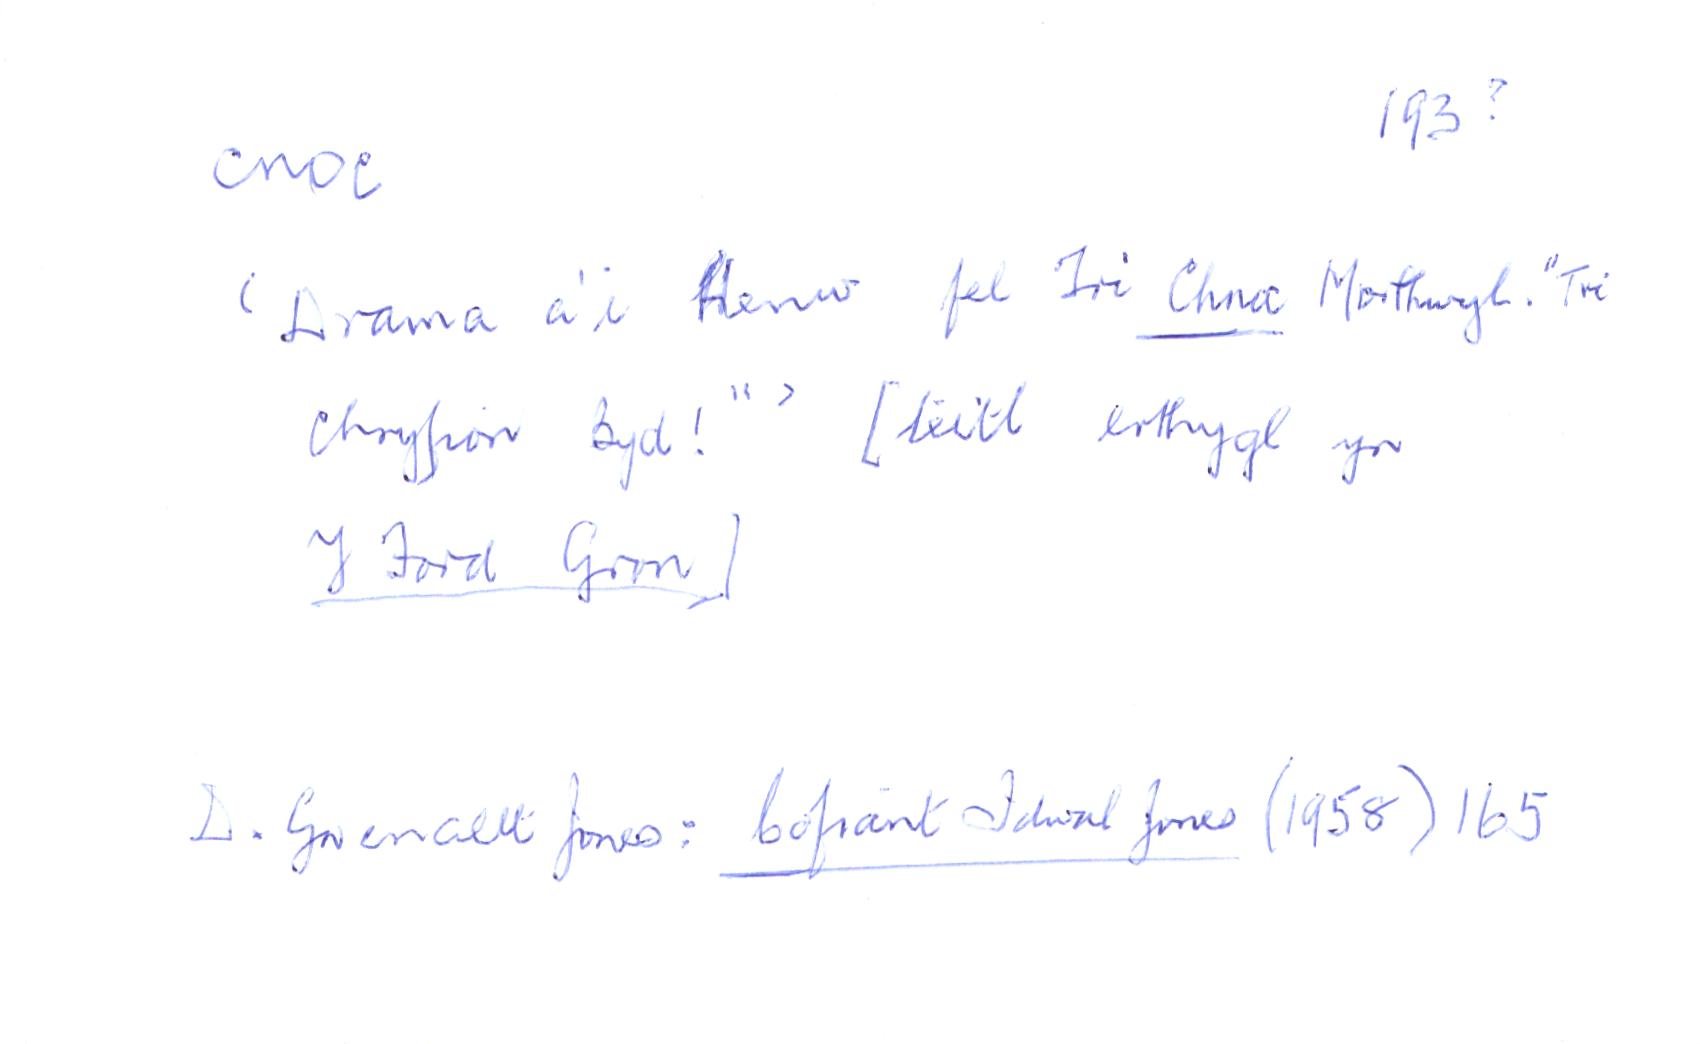 193?
cnoc
‘Drama a'i Henw fel Tri Chnoc Morthwyl. "Tri
Chryfion Byd!"’ [teitl erthygl yn
Y Ford Gron]
D. Gwenallt Jones: Cofiant Idwal Jones (1958) 165